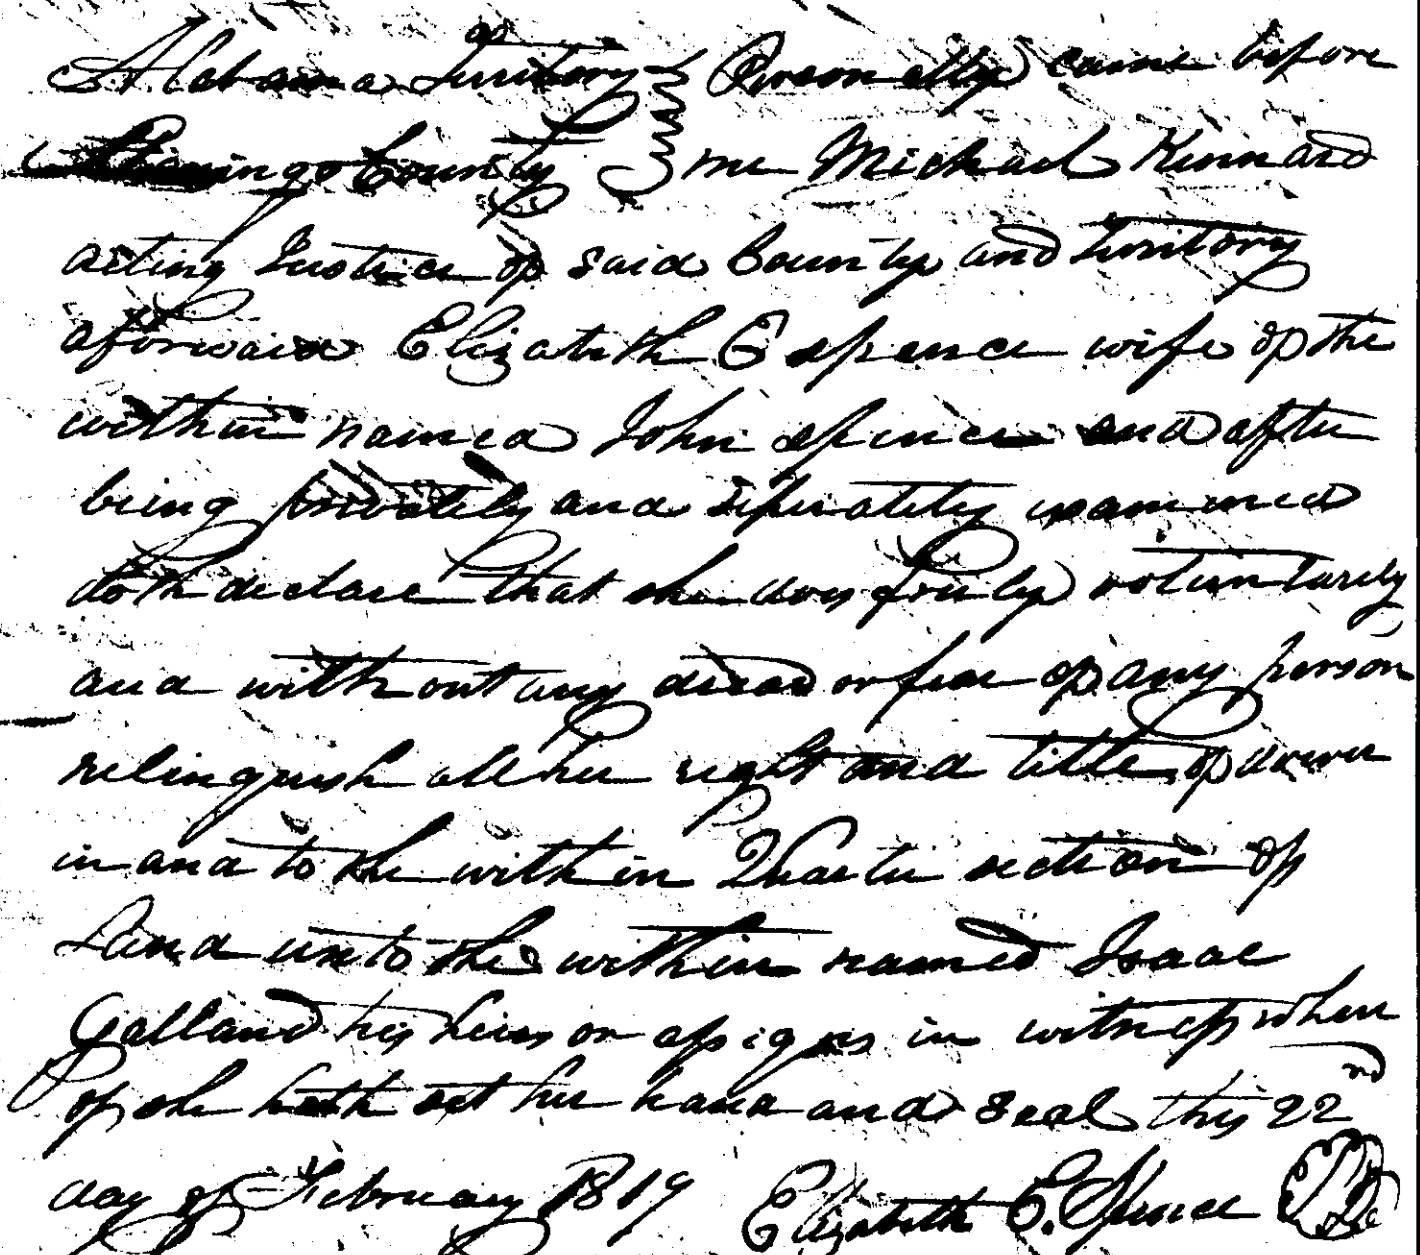 Alabama Territory } Personally came before
County } me Michael Kennard
acting Justice of said County and Territory
aforesaid Elizabeth E Spence wife of the
within named John Spence and after
being privately and seperately examined
doth declare that she does freely voluntarily
and without any dread or fear of any person
relinquish all her right and title of dower
in and to the within Quarter section of
Land unto the within named Isaac
Galland his heirs or assigns in witness where
of she hath set her hand and seal this 22nd
day of February 1819 Elizabeth E. Spence